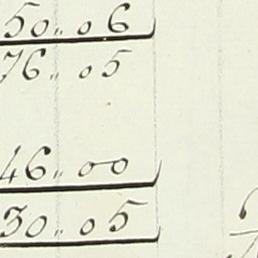 50.. 06
76.. 05
46.. 00
30.. 05